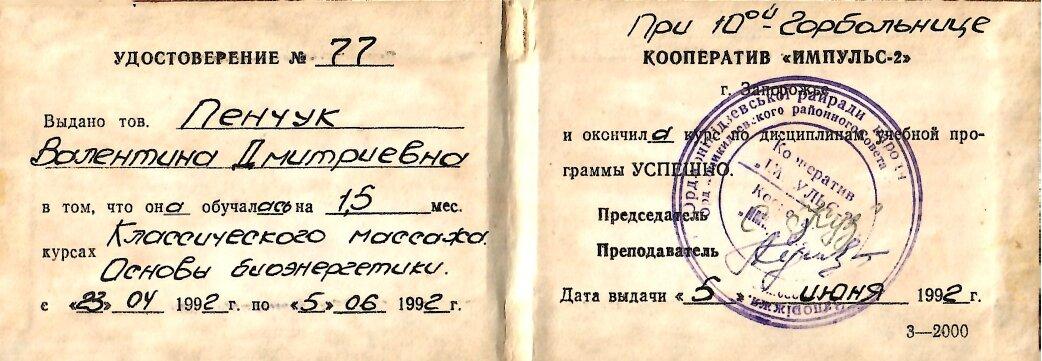 УДОСТОВЕРЕНИЕ № 77
Выдано тов. Пенчук
Валентина Дмитриевна
в том, что она обучалась на 1,5 мес.
курсах Классического массажа.
Основы биоэнергетики.
с «23» 04 1992 г. по «5» 06 1992 г.
При 10ой Горбольнице
КООПЕРАТИВ «ИМПУЛЬС-2»
г. Запорожье
и окончила курс по дисциплинам учебной про-
граммы УСПЕШНО.
Председатель
Преподаватель
Дата выдачи «5» июня 1992 г.
3—2000
районного
Кооператив